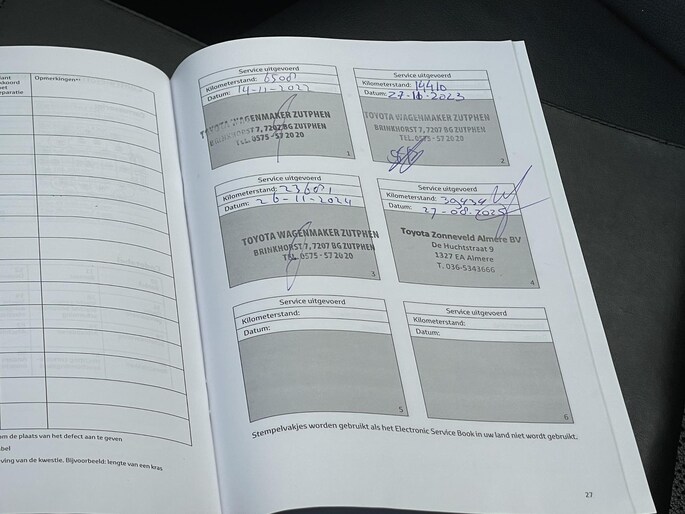 Opmerkingen
Service uitgevoerd
Kilometerstand: 6508
Datum: 14-11-2022
TOYOTA WAGENMAKER ZUTPHEN
BRINKHORST 7, 7207 BG ZUTPHEN
TEL. 0575 - 57 20 20
1
Service uitgevoerd
Kilometerstand: 14410
Datum: 27-10-2023
TOYOTA WAGENMAKER ZUTPHEN
BRINKHORST 7, 7207 BG ZUTPHEN
TEL. 0575 - 57 20 20
2
Service uitgevoerd
Kilometerstand: 23681
Datum: 26-11-2024
TOYOTA WAGENMAKER ZUTPHEN
BRINKHORST 7, 7207 BG ZUTPHEN
TEL. 0575 - 57 20 20
3
Service uitgevoerd
Kilometerstand: 39434
Datum: 27-08-2025
Toyota Zonneveld Almere BV
De Huchtstraat 9
1327 EA Almere
T. 036-5343666
4
Service uitgevoerd
Kilometerstand:
Datum:
5
Service uitgevoerd
Kilometerstand:
Datum:
6
Stempelvakjes worden gebruikt als het Electronic Service Book in uw land niet wordt gebruikt.
27
om de plaats van het defect aan te geven
ving van de kwestie. Bijvoorbeeld: lengte van een kras